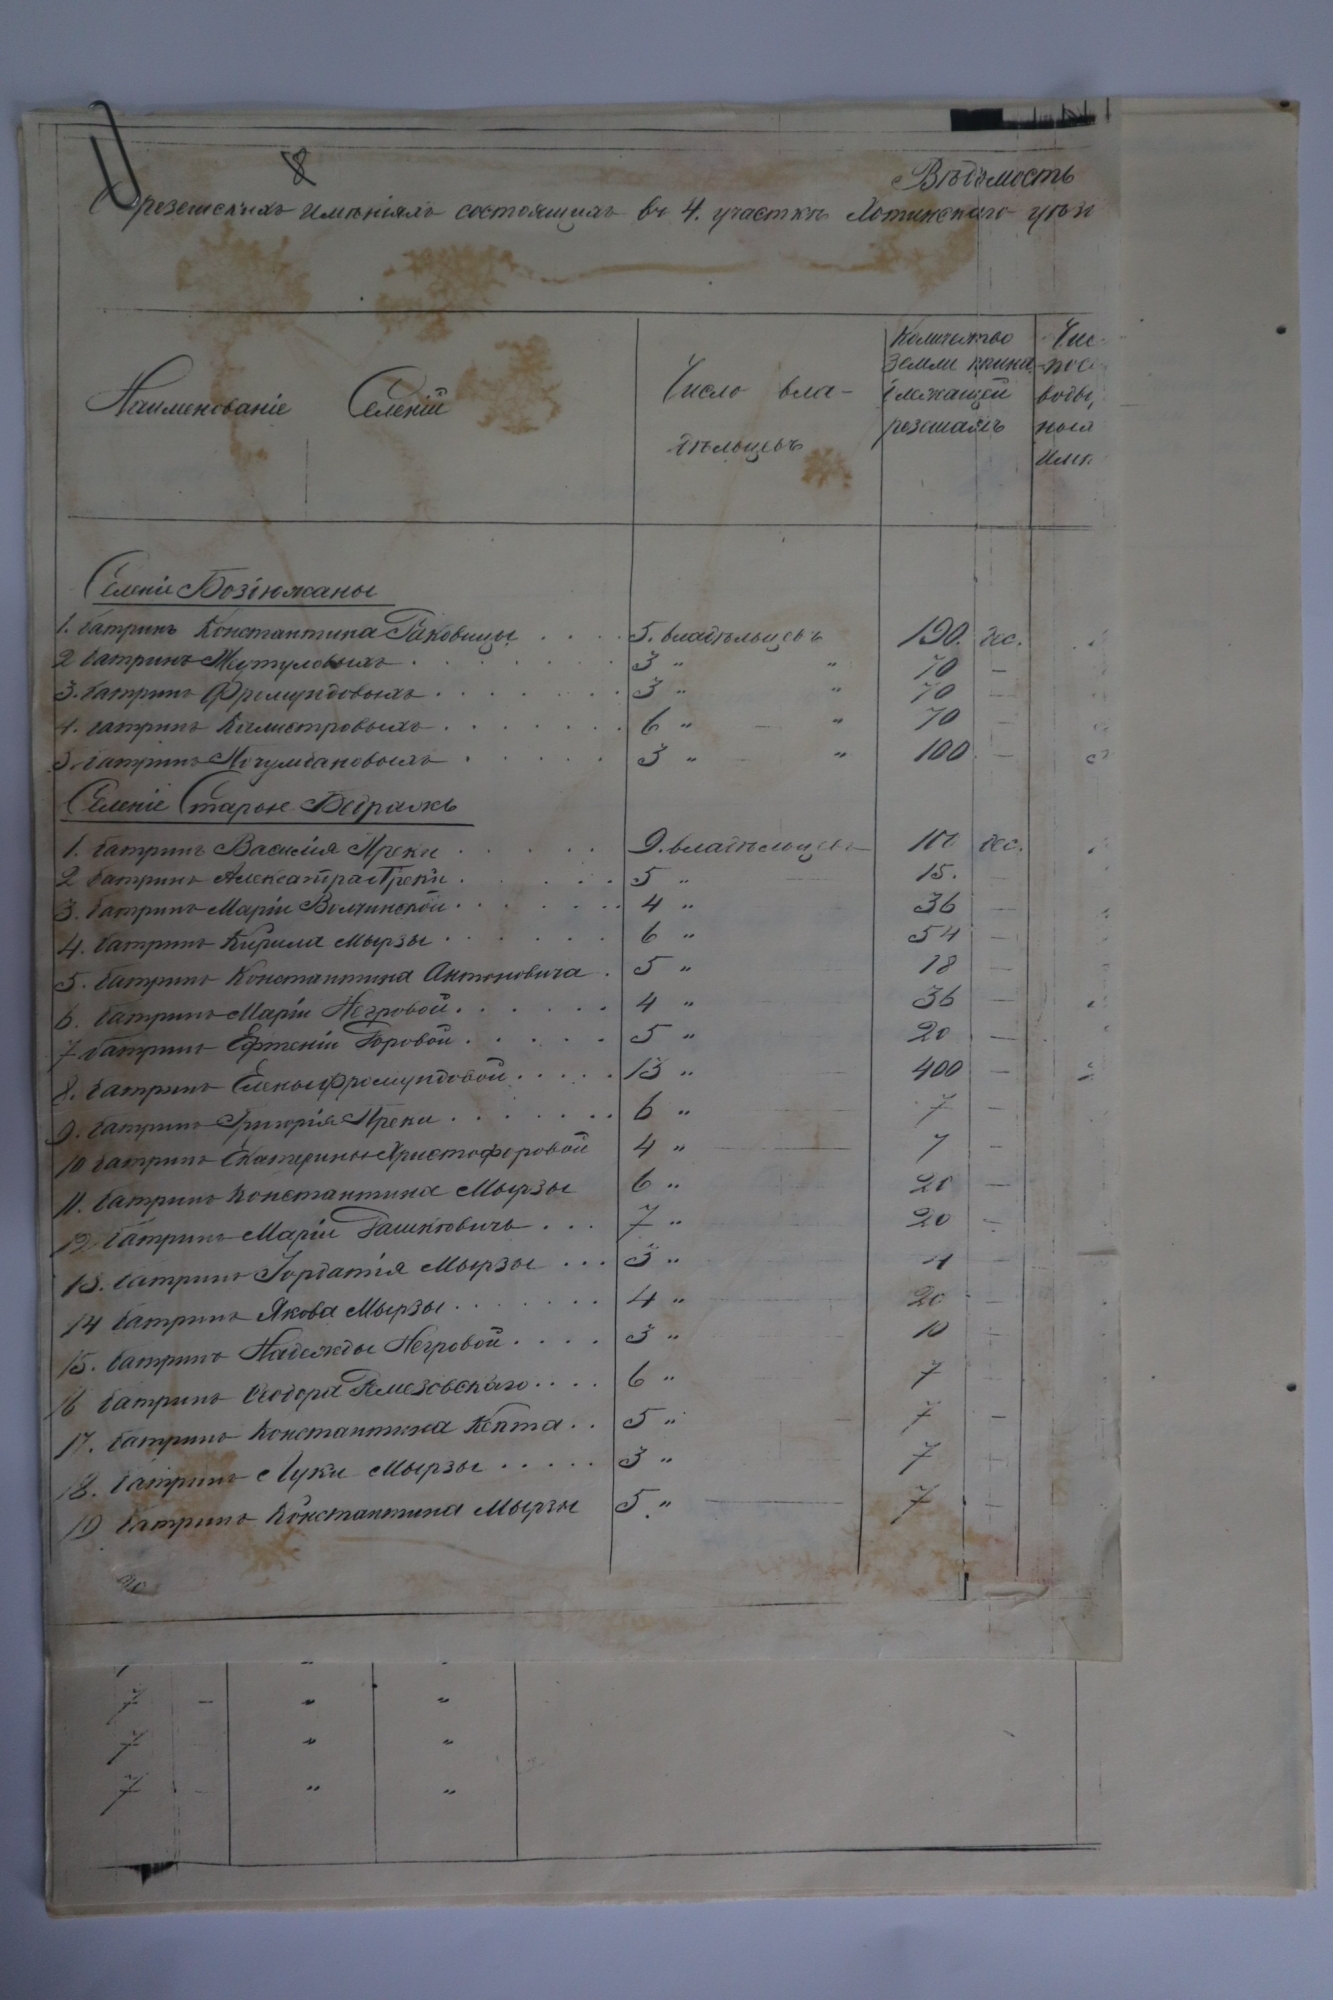 8
Вѣдомость
резешскихъ имѣніяхъ состоящихъ въ 4. участкѣ Хотинскаго уѣз
Наименованіе Селеній
Число вла-
дѣльцевъ
Количество
земли прина
длежащей
резешамъ
Чис
водъ,
ныя
имѣ
Селеніе Бозіюжаны
1. батринъ Константина Раковицы . . . . 5. владѣльцевъ 190. дес.
2 батринъ . . . . . . . 3 " " 70 —
3. батринъ Фромундовыхъ . . . . . . . 3 " " 70 —
4. батринъ . . . . . . . 6 " — " 70 —
5. батринъ . . . . . 3 " — " 100 —
Селеніе Старые Бедражъ
1. батринъ Василія . . . . . 9. владѣльцевъ дес.
2 батринъ Александра . . . . . . 5 " 15.
3. батринъ Маріи Волчинской . . . . . . . 4 " 36 —
4. батринъ Кирила Мырзы . . . . . . 6 " 54 —
5. батринъ Константина Антоновича . 5 " 18 —
6. батринъ Маріи Негровой . . . . . . 4 " 36 —
7 батринъ Ефтеніи . . . . . 5 " 20 —
8. батринъ Елены Фромундовой . . . . . 13 " 400 —
9. батринъ Григорія . . . . . . . 6 " 7 —
10 батринъ Екатерины Христофоровой 4 " 7 —
11. батринъ Константина Мырзы 6 " 20 —
12. батринъ Маріи . . . 7 " 20 —
13. батринъ Іордатія Мырзы . . . 3 " 4 —
14 батринъ Якова Мырзы . . . . . . . 4 " 20 —
15. батринъ Надежды Негровой . . . . 3 " 10 —
16 батринъ Ѳеодора . . . . 6 " 7 —
17. батринъ Константина Кепта . . 5 " 7 —
18. батринъ Луки Мырзы . . . . . 3 " 7 —
19 батринъ Константина Мырзы 5 " 7 —
7 — " "
7 " "
7 - " "